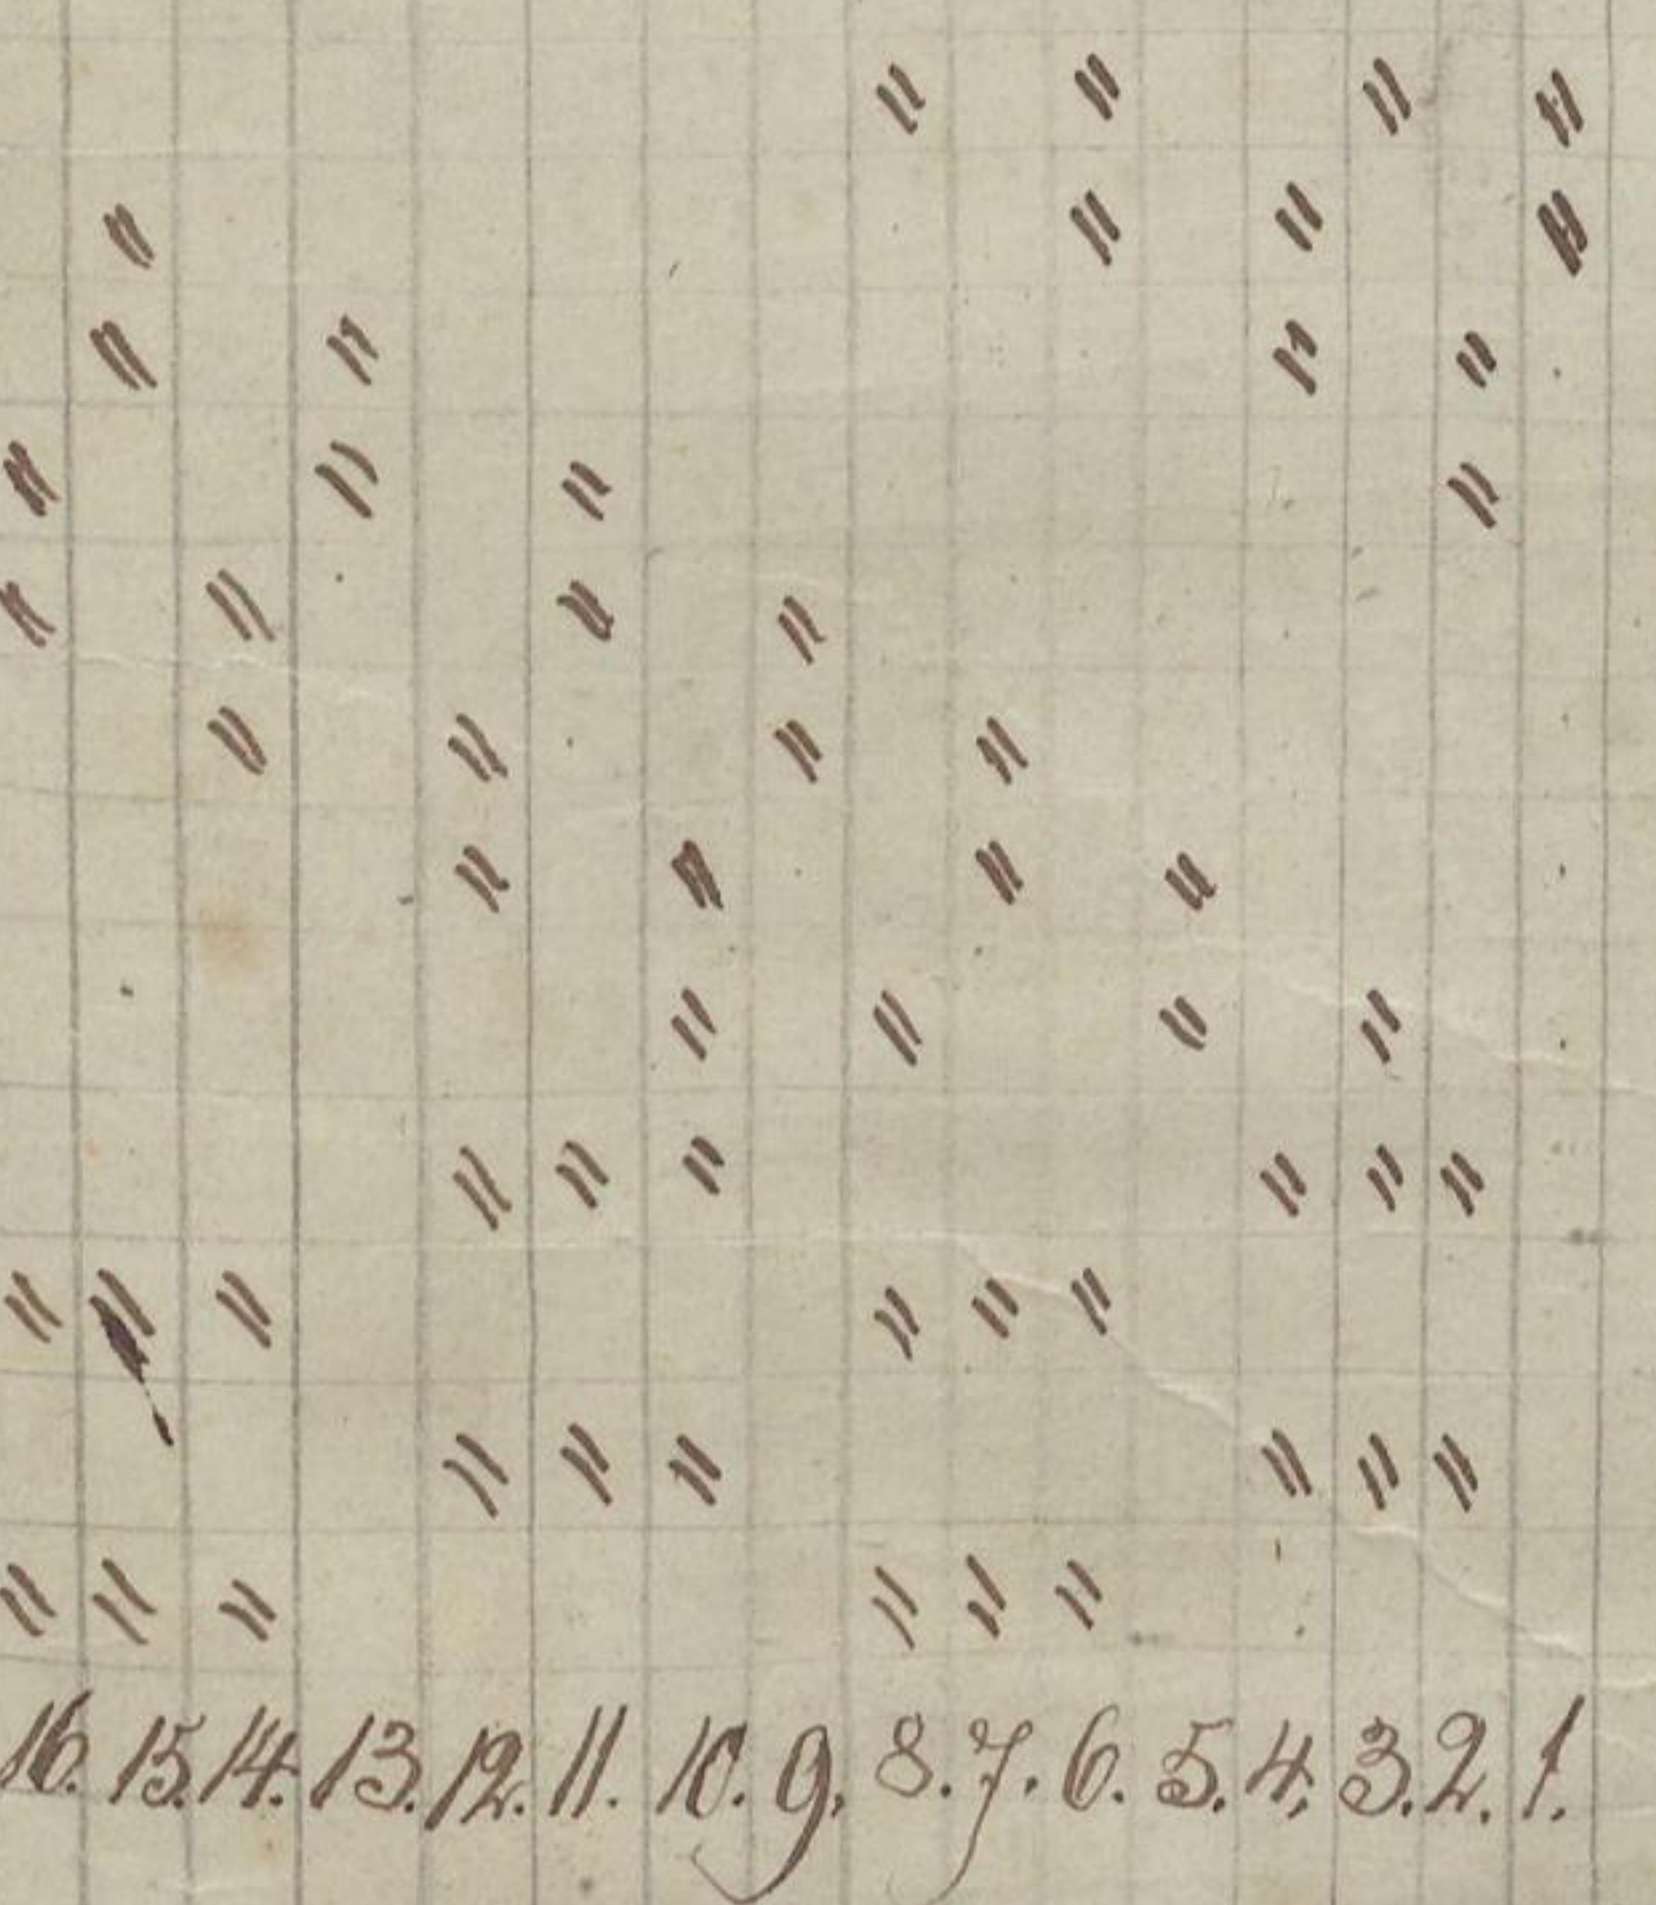 16. 15. 14. 13. 12. 11. 10. 9. 8. 7. 6. 5. 4. 3. 2. 1.